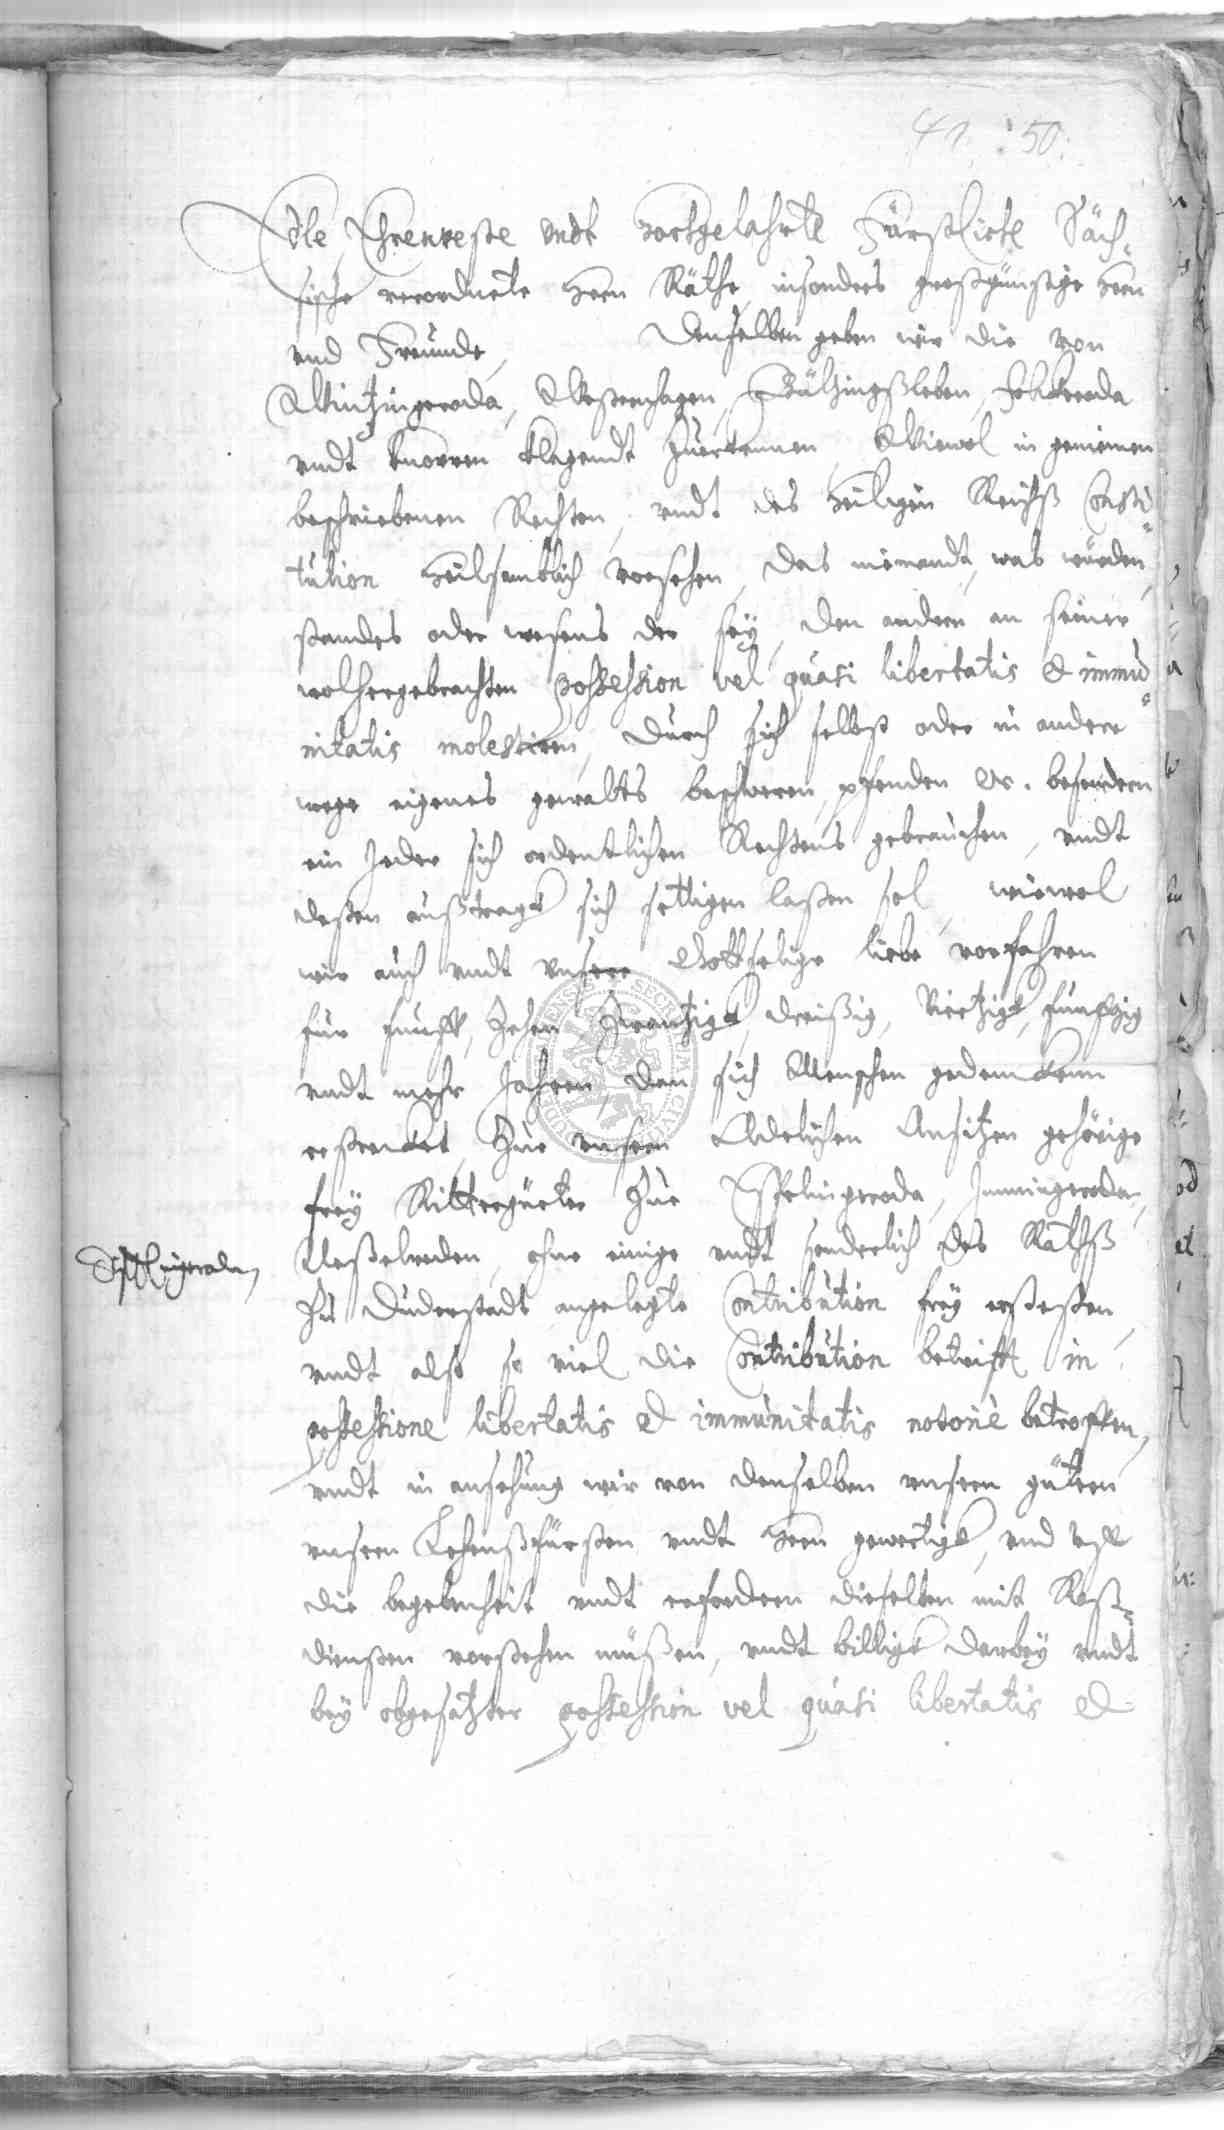 41. 50.
Edle Ehrenveste vndt Hochgelahrte Fürstliche Säch-
sische verordnete Hern Räthe, insonders großgünstige Hern
vnd Freunde, Denselben geben wir die von
Wintzingeroda, Westernhagen, Bültzingßleben,
vndt Knorren klagendt zuerkennen, Wiewol in gemeinen
beschriebenen Rechten, vndt des Heiligen Reichß Consti-
tution heilsamblich vorsehen, das niemandt, was würden,
standes oder wesens der sey, den andern an seiner
wolhergebrachten possession vel quasi libertatis et immu-
nitatis molestiren, durch sich selbst oder in andere
wege eigenes gewalts beschweren, pfenden etc. besondern
ein Jeder sich ordentlichen Rechtens gebrauchen, vndt
deßen außtrags sich settigen laßen sol, wiewol
wir auch vndt vnsere Gottselige liebe vorfahren
für funff, Zehen Zwantzigk, dreißig, Viertzigk, funfftzig
vndt mehr Jahren, dan sich Menschen gedencken
erstrecket, Zue vnsern Adelichen Ansitzen gehörige
frey Rittergüeter Zue Esplingeroda, Immingeroda,
Desplingeroda
Neßelreden, ohne einige vndt sonderlich des Rathß
Zu Duderstadt angelegte Contribution frey erseßen,
vndt also so viel die Contribution betrifft in
possessione libertatis et immunitatis notoriè betroffen,
vndt in ansehung wir von denselben vnsern gütern
vnsern Lehenßfürsten vndt Hern gewertigk, vnd vff
die begebenheit vndt erfordern dieselben mit Roß-
diensten vorstehen müßen, vndt billigk darbey vndt
bey obgesatzter possession vel quasi libertatis et